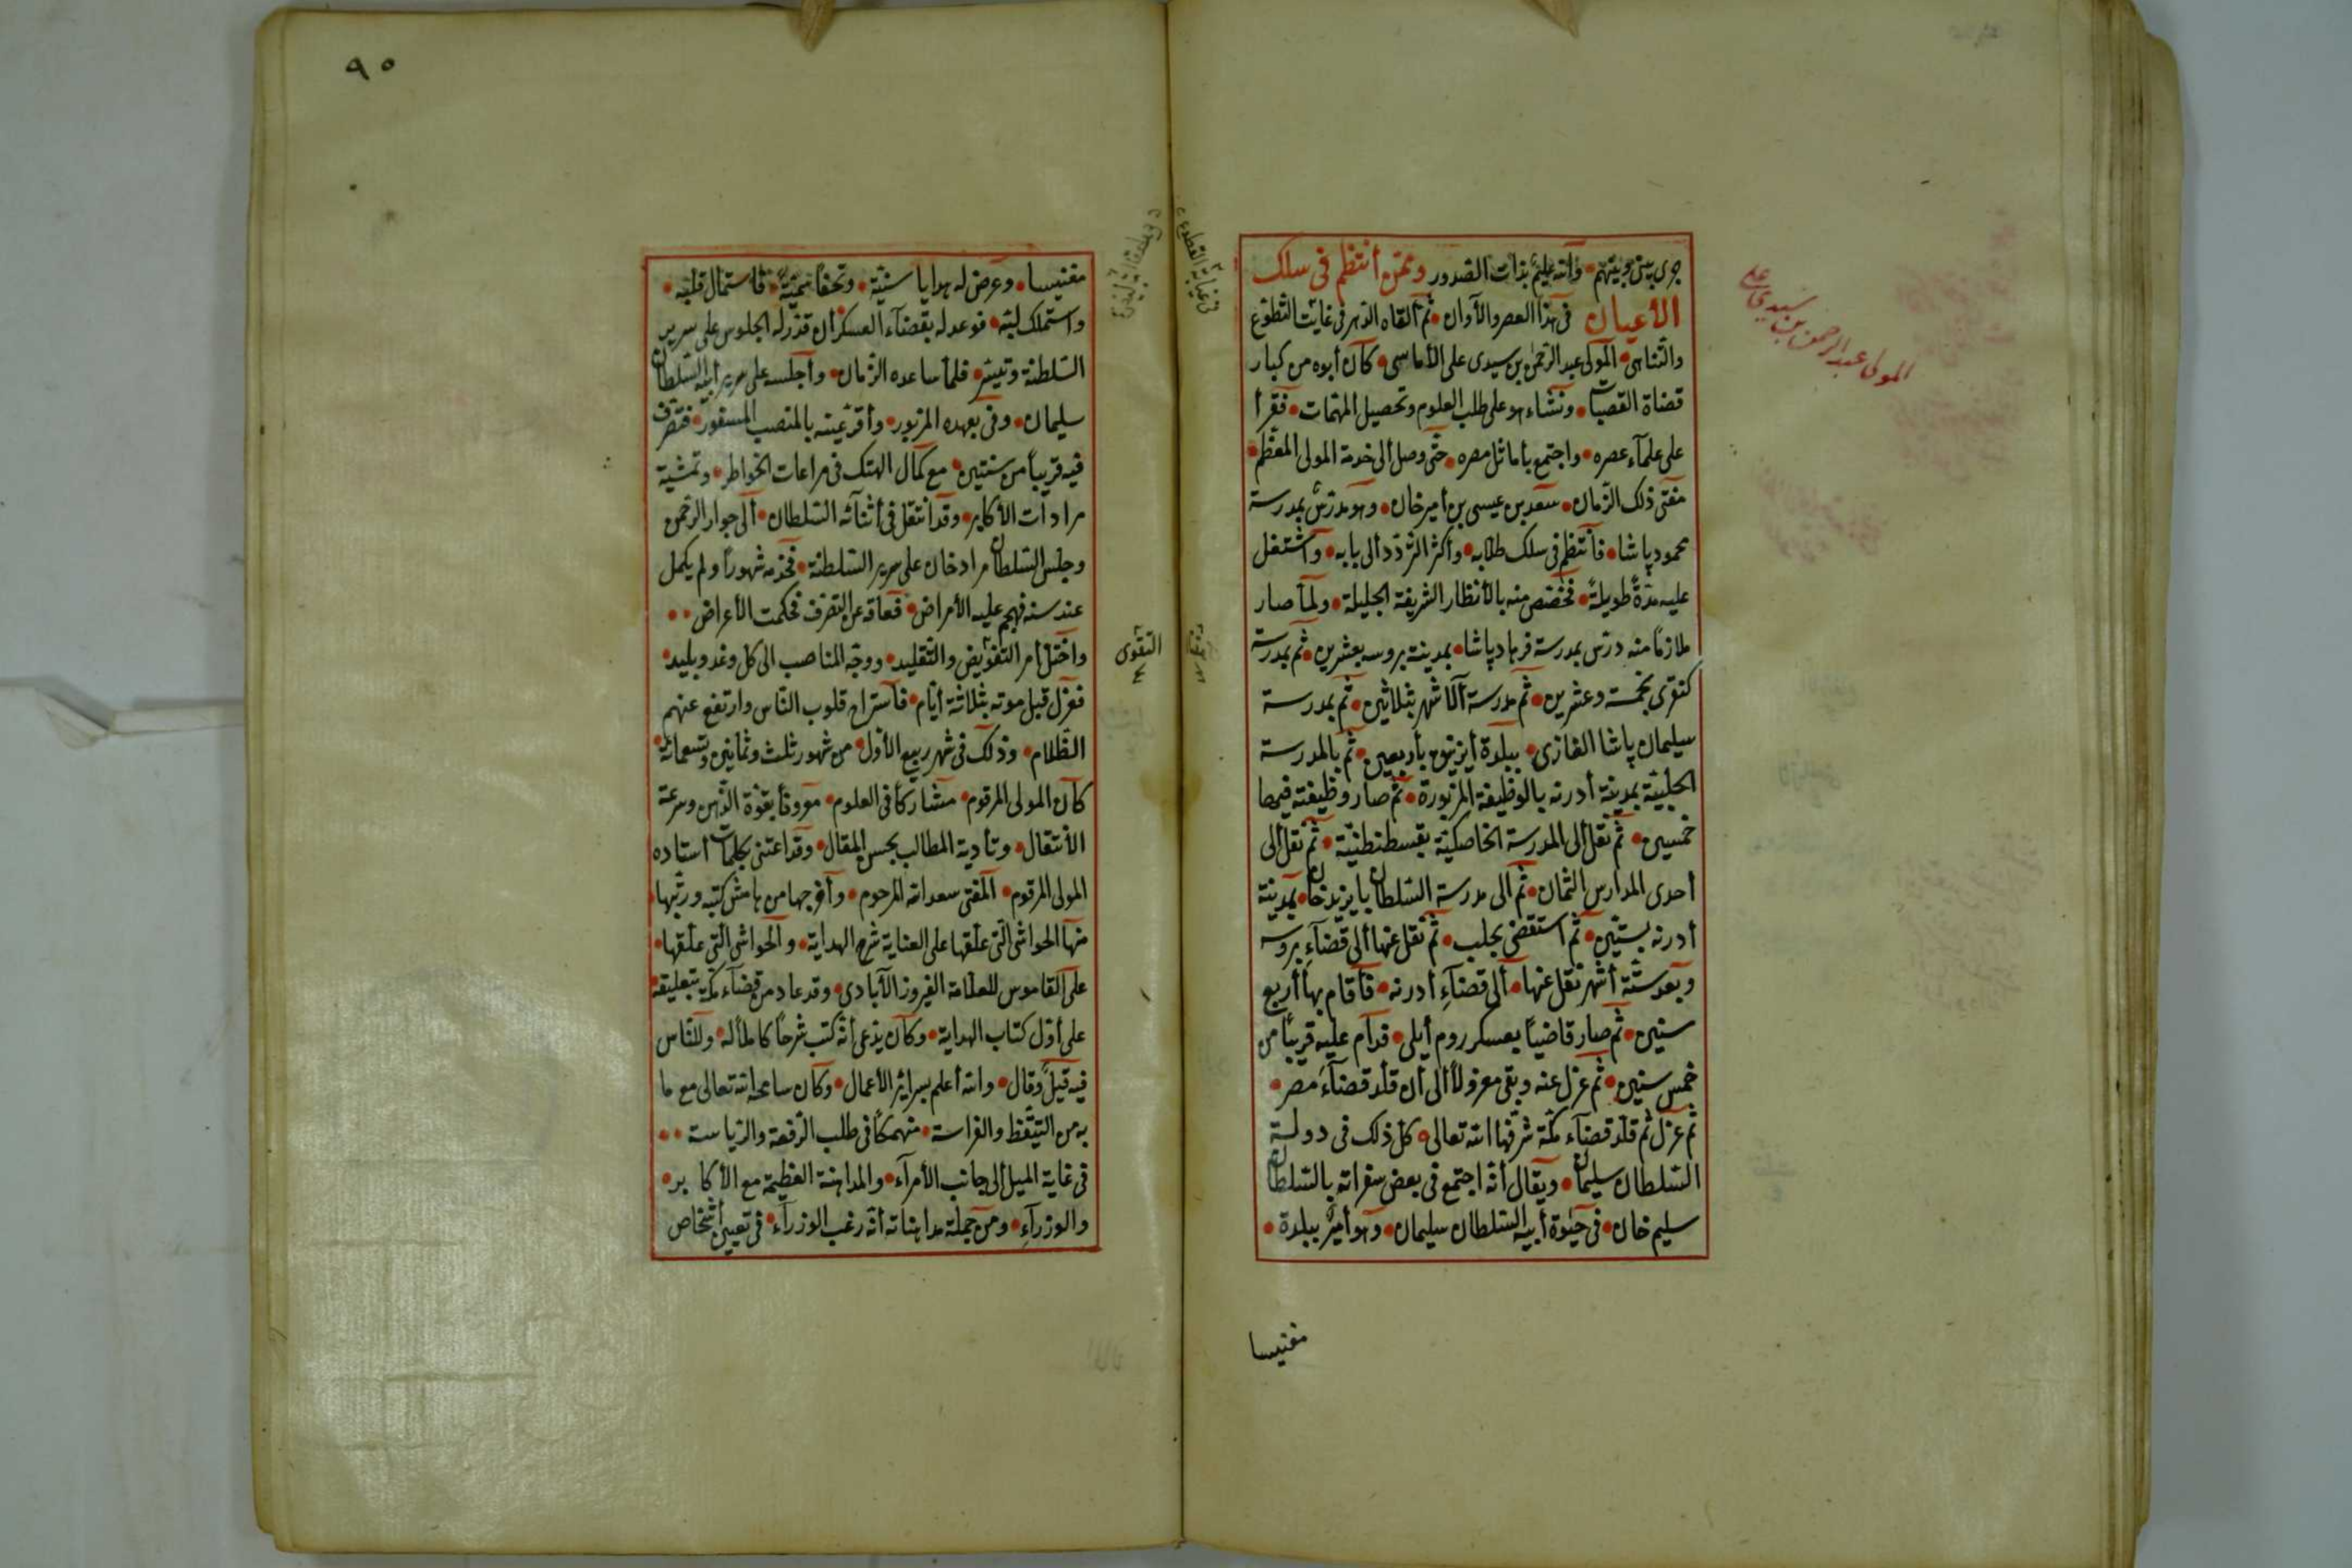 جرى بين جويتهم وانه عليم بذات الصدور وممن أنتظم فى سلك
الأعيان فى هذا العصر والآوان ثم القاه الدهر فى غايت التطوع
والتناهى المولى عبد الرحمن بن سيدى على الأماسى كان أبوه من كبار
قضاة القصبات ونشاء هو على طلب العلوم وتحصيل المهمات فقرأ
على علمآء عصره واجتمع بأماثل مصره حتى وصل الى خدمة المولى المعظم
مفتى ذلك الزمان سعد بن عيسى بن أمير خان وهو مدرس بمدرسة
محمود پاشا فأنتظم فى سلك طلابه وأكثر التردد ألى بابه وآشتغل
عليه مدة طويلة فختص منه بالأنظار الشريفة الجليلة ولما صار
ملازما منه درس بمدرسة فرهاد پاشا بمدينة بروسه بعشرين ثم بمدرسة
كنقرى بخمسة وعشرين ثم مدرسة آلاشهر بثلاثين ثم بمدرسة
سليمان پاشا الغازى ببلدة أيزنيق بأربعين ثم بالمدرسة
الحلبية بمدينة أدرنه بالوظيفة المزبورة ثم صار وظيفته فيها
خمسين ثم نقل الى المدرسة الخاصكية بقسطنطنية ثم نقل ألى
أحدى المدارس الثمان ثم الى مدرسة السلطان بايزيد خان بمدينة
أدرنه بستين ثم استقضى بحلب ثم نقل عنها ألى قضاء بروسه
وبعد ستة أشهر نقل عنها ألى قضاء أدرنه فأقام بها أربع
سنين ثم صار قاضيا بعسكر روم أيلى فدام عليه قريبا من
خمس سنين ثم عزل عنه وبقى معزولا ألى أن قلد قضاء مصر
ثم عزل ثم قلد قضاء مكة شرفها الله تعالى كل ذلك فى دولة
السلطان سليمان ويقال أنه اجتمع فى بعض سفراته بالسلطان
سليم خان فى حيوة أبيه السلطان سليمان وهو أمير ببلدة
مغنيسا
المولى عبد الرحمن بن سيدى على
٩٥
مغنيسا وعرض له هدايا سنية وتحفا بهية فأستمال قلبه
واستملك لبه فوعد له بقضاء العسكر أن قدر له الجلوس على سرير
السلطنة وتيسر فلما ساعده الزمان وأجلسه على سرير أبيه السلطان
سليمان وفى بعهده المزبور وأقر عينه بالمنصب المسفور فتصرف
فيه قريبا من سنتين مع كمال الهتك فى مراعات الخواطر وتمشية
مرادات الأكابر وقد انتقل فى أثنائه السلطان ألى جوار الرحمن
وجلس السلطان مراد خان على سرير السلطنة فخدمه شهورا ولم يكمل
عنده سنة فهجم عليه الأمراض فعاقه عن التصرف فحكمت الأعراض
واختل أمر التفويض والتقليد ووجه المناصب الى كل وغد وبليد
فعزل قبل موته بثلاثة أيام فأستراح قلوب الناس وارتفع عنهم
الظلام وذلك فى شهر ربيع الأول من شهور ثلث وثمانين وتسعمائة
كان المولى المرقوم مشاركا فى العلوم معروفا بقوة الذهن وسرعة
الأنتقال وتأدية المطالب بحسن المقال وقد اعتنى بكلمات أستاده
المولى المرقوم المفتى سعد الله المرحوم وأخرجها من هامش كتبه ورتبها
منها الحواشى التى علقها على العناية شرح الهداية والحواشى التى علقها
على القاموس للعلامة الفيروزالآبادى وقد عاد من قضاء مكة بتعليقه
على أول كتاب الهداية وكان يدعى أنه كتب شرحا كاملا له وللناس
فيه قيل وقال والله أعلم بسرائر الأعمال وكان سامحه الله تعالى مع ما
به من التيقظ والفراسة منهمكا فى طلب الرفعة والرياست
فى غاية الميل ألى جانب الأمرآء والمداهنة العظيمة مع الأكابر
والوزرآء ومن جملة مداهناته أنه رغب الوزرآء فى تعيين أشخاص
التقوى